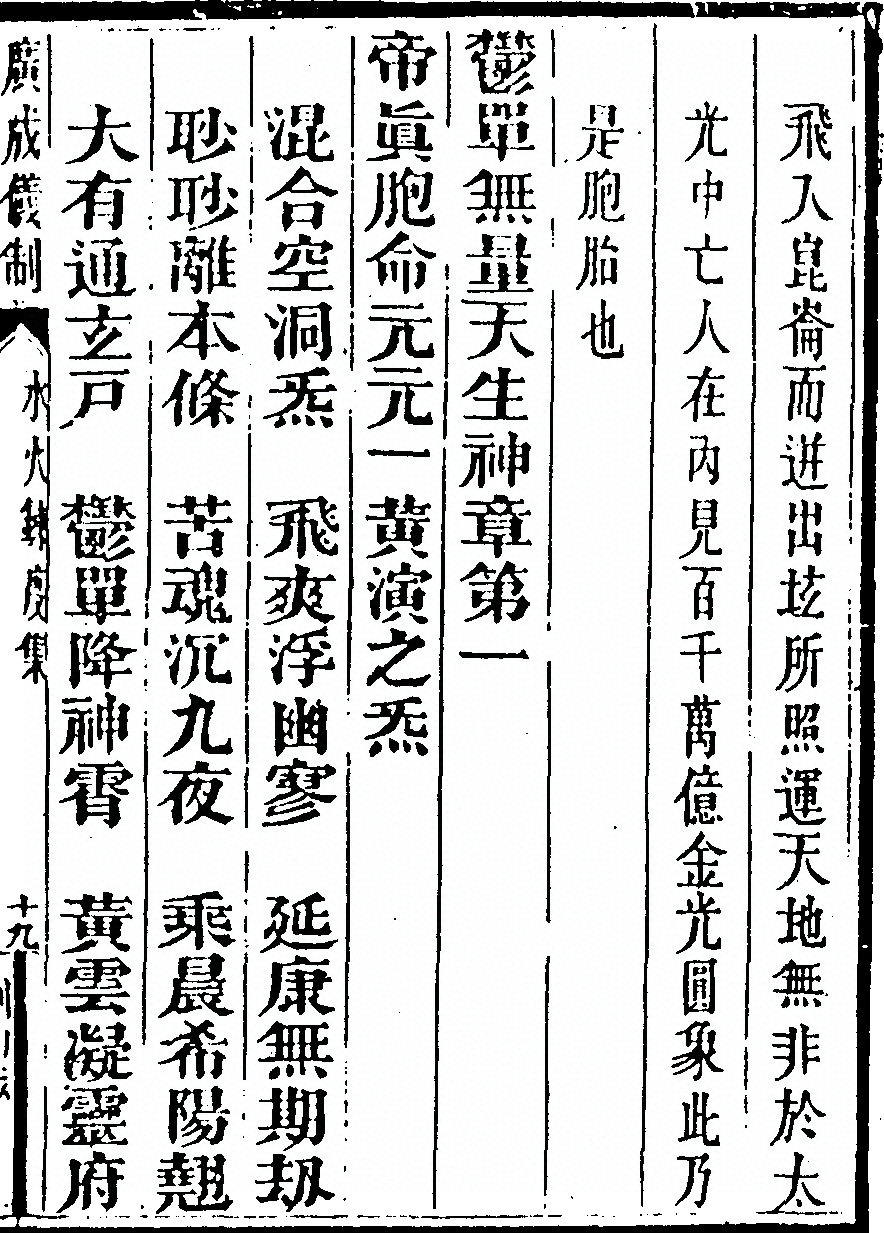 飛入崑崙而迸出垓所照運天地無非於太
光中亡人在內見百千萬億金光圓象此乃
是胞胎也
鬱單無量天生神章第一
帝眞胞命元元一黃演之炁
混合空洞炁 飛爽浮幽寥 延康無期劫
眇眇離本條 苦魂沉九夜 乘晨希陽翹
大有通玄戸 鬱單降神霄 黃雲凝靈府
廣成儀制 水火鍊度集 十九